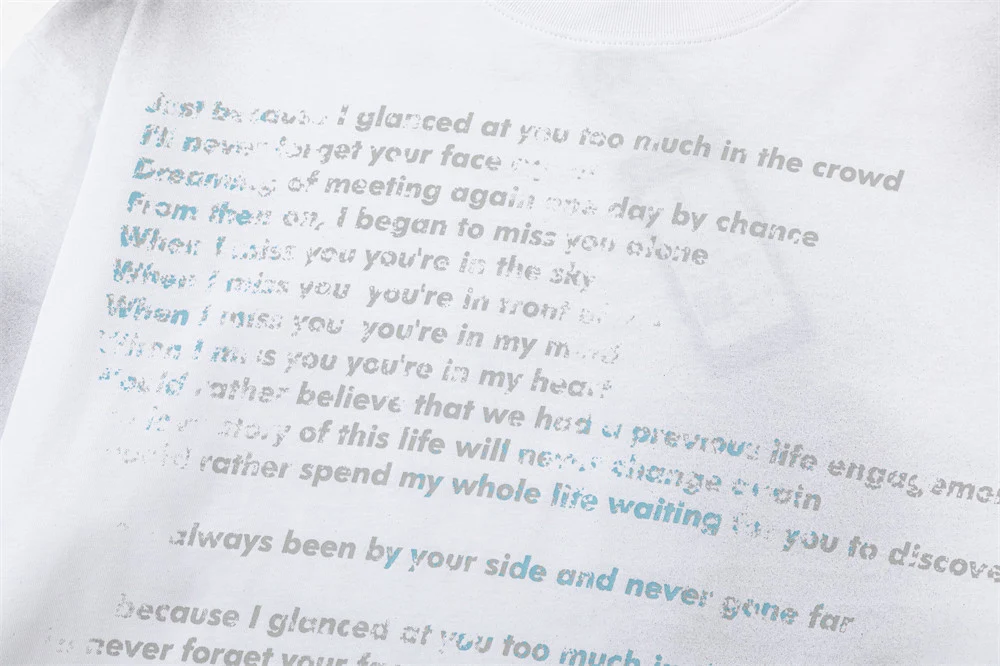 Just because I glanced at you too much in the crowd
I'll never forget your face again
Dreaming of meeting again one day by chance
From then on, I began to miss you alone
When I miss you you're in the sky
When I miss you you're in front
When I miss you you're in my mind
When I miss you you're in my heart
would rather believe that we had a previous life
story of this life will never change again
would rather spend my whole life waiting for you to
always been by your side and never gone far
because I glanced at you too much in
never forget your